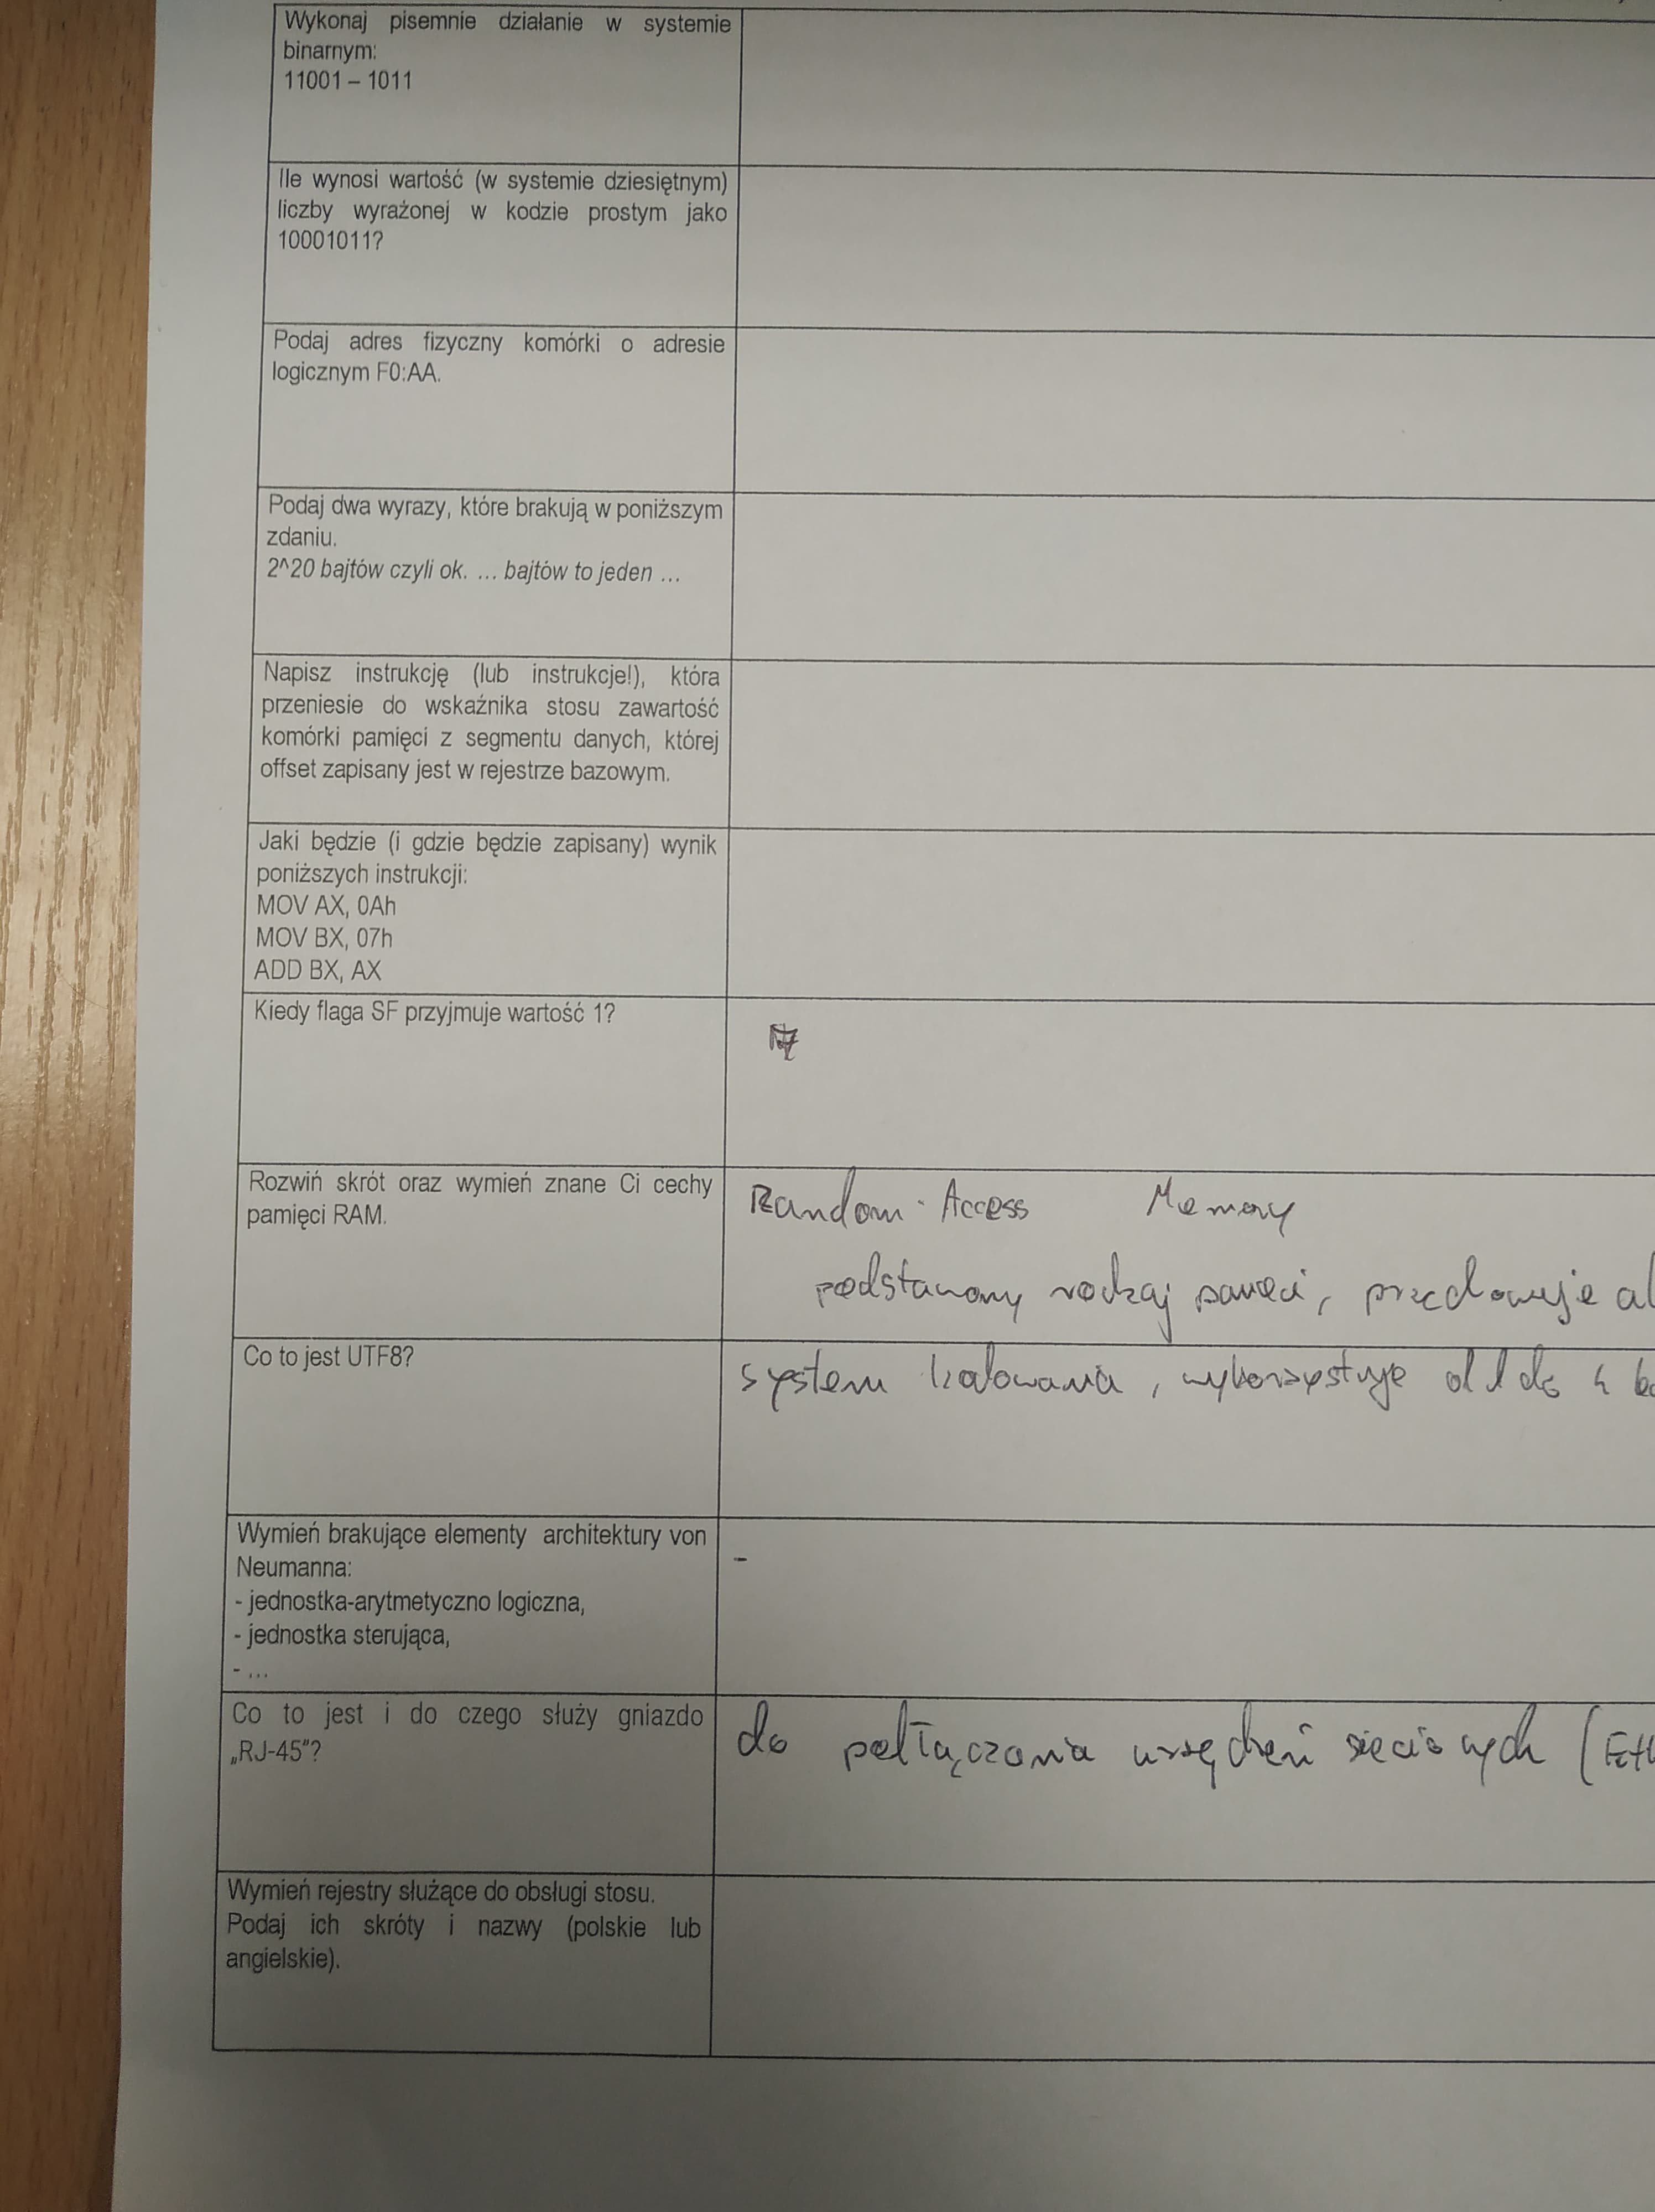 Wykonaj pisemnie działanie w systemie
binarnym:
11001 – 1011
Ile wynosi wartość (w systemie dziesiętnym)
liczby wyrażonej w kodzie prostym jako
10001011?
Podaj adres fizyczny komórki o adresie
logicznym F0:AA.
Podaj dwa wyrazy, które brakują w poniższym
zdaniu.
2^20 bajtów czyli ok. ... bajtów to jeden ...
Napisz instrukcję (lub instrukcje!), która
przeniesie do wskaźnika stosu zawartość
komórki pamięci z segmentu danych, której
offset zapisany jest w rejestrze bazowym.
Jaki będzie (i gdzie będzie zapisany) wynik
poniższych instrukcji:
MOV AX, 0Ah
MOV BX, 07h
ADD BX, AX
Kiedy flaga SF przyjmuje wartość 1?
Rozwiń skrót oraz wymień znane Ci cechy
pamięci RAM.
Random - Access Memory
podstawowy rodzaj pamięci, przechowuje
Co to jest UTF8?
system kodowania, wykorzystuje od 1 do 4
Wymień brakujące elementy architektury von
Neumanna:
- jednostka-arytmetyczno logiczna,
- jednostka sterująca,
- ...
-
Co to jest i do czego służy gniazdo
„RJ-45"?
do połączania urządzeń sieciowych (Eth
Wymień rejestry służące do obsługi stosu.
Podaj ich skróty i nazwy (polskie lub
angielskie).